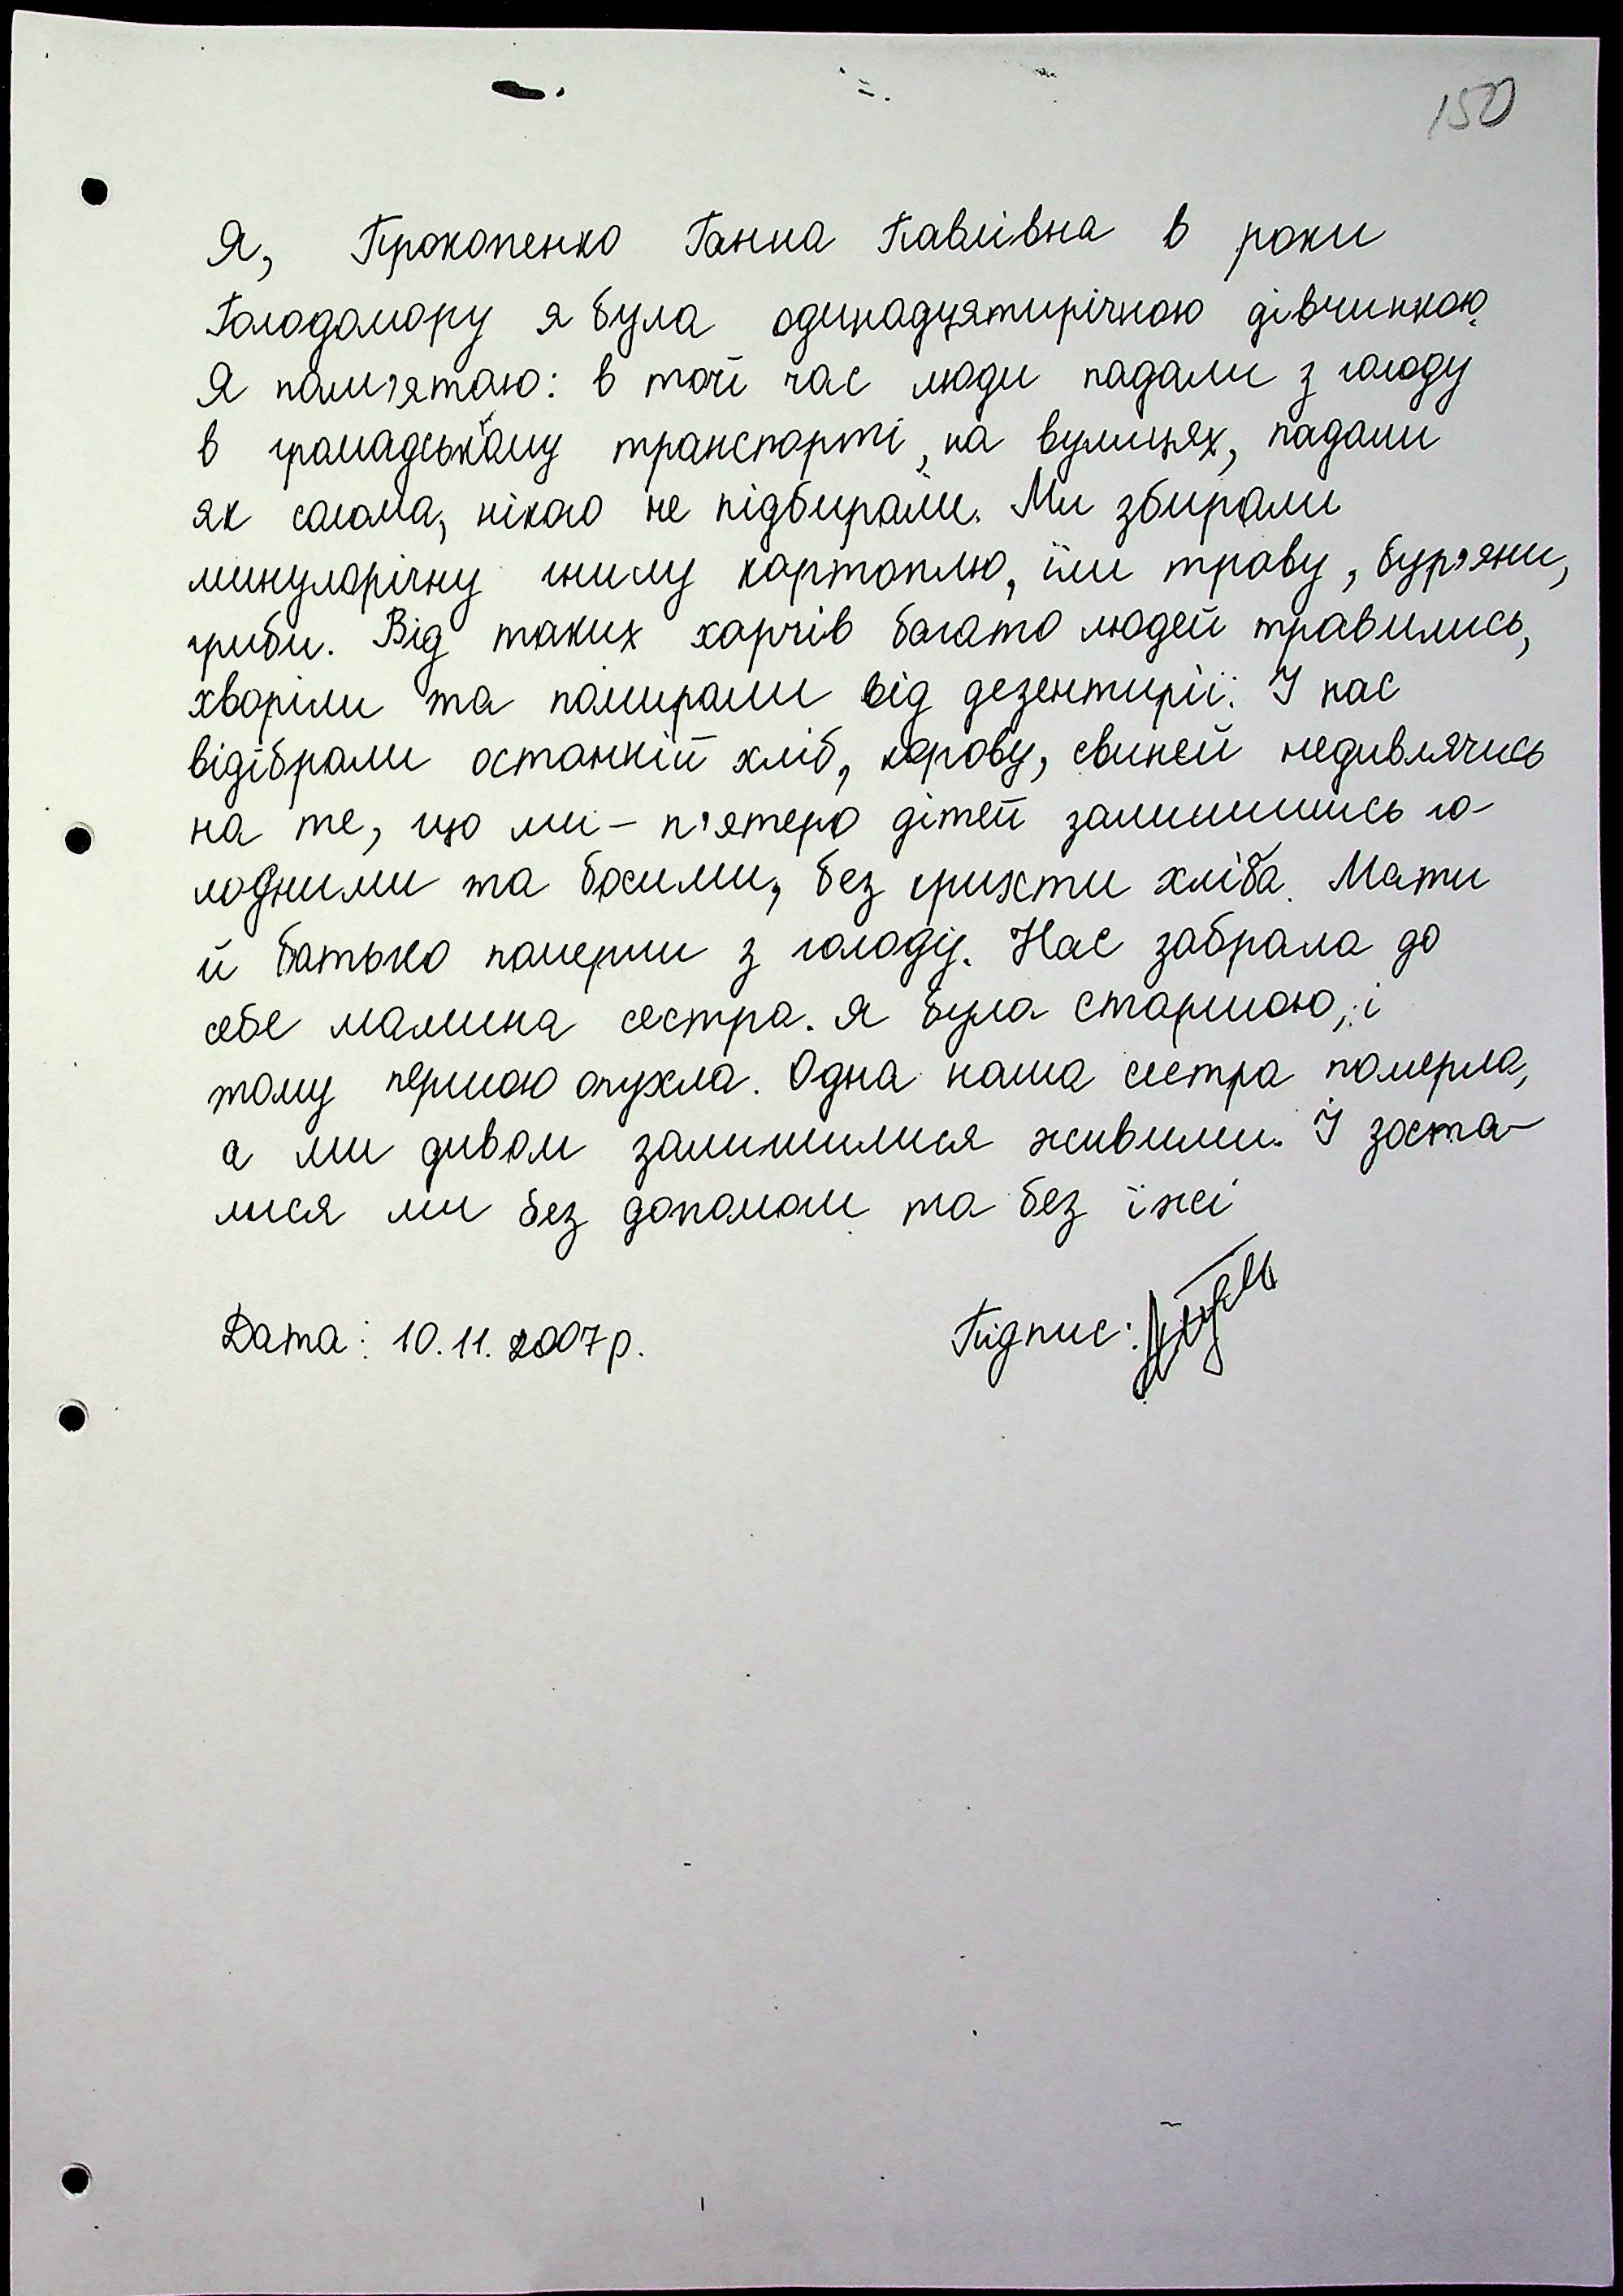 150
Я, Прокопенко Ганна Павлівна в роки
Голодомору я була одинадцятирічною дівчинкою.
Я пам'ятаю: в той час люди падали з голоду
в громадському транспорті, на вулицях, падали
як солома, нікого не підбирали. Ми збирали
минулорічну гнилу картоплю, їли траву, бур'яни,
гриби. Від таких харчів багато людей травились,
хворіли та помирали від дезентирії. У нас
відібрали останній хліб, корову, свиней недивлячись
на те, що ми - п'ятеро дітей залишились го-
лодними та босими, без крихти хліба. Мати
й батько померли з голоду. Нас забрала до
себе мамина сестра. Я була старшою, і
тому першою опухла. Одна наша сестра померла,
а ми дивом залишилися живими. І зоста-
лися ми без допомоги та без їжі
Дата: 10.11.2007р. Підпис: